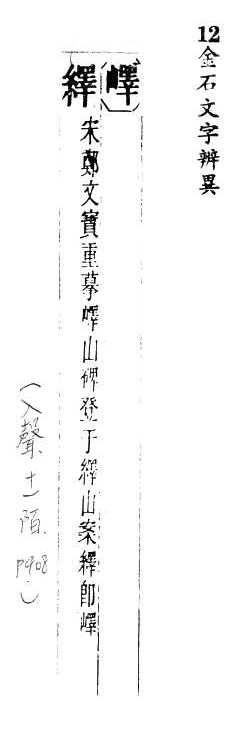 12金石文字辨異
嶧
繹 宋鄭文寶重摹嶧山碑登于繹山案繹卽嶧
(入聲十一陌 P908)